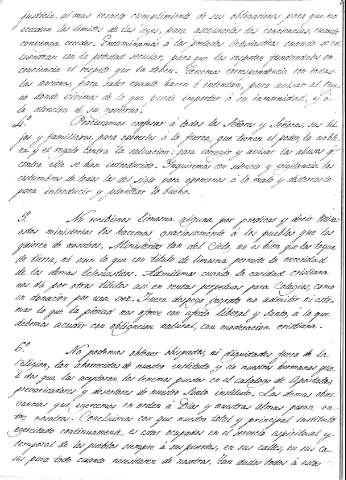 justicia, al mas exacto cumplimiento de sus obligaciones para que no
excedan los limites de las leyes, para asegurarles las conciencias cuando
convenga ceder. Encaminamos a los prelados Eclesiasticos cuando se en
cuentran con la potestad secular, para que los respeten fomentandoles en
conciencia el respeto que les deben. Tenemos correspondencia con todas
las naciones, para saber cuando hacen o intentan, para avisar al rey
no donde vivimos de lo que puede importar a su inmunidad, y a
la atencion al su gobierno.
4.° Procuramos confesar a todos los Señores y Señoras sus hi
jos y familiares, para saberlos a la fuerza, que tienen el poder, la noble
za y el regalo contra la salvacion, para conocer y avisar los abusos q.e
contra ella se han introducido. Inquirimos con silencio y vigilancia las
costumbres de todos los del siglo para oponernos a lo malo y desterrarlo
para introducir y plantear lo bueno.
5.° No recibimos limosna alguna por predicar y otros Mini
sterios ministerios los hacemos graciosamente a los pueblos que los
quieren de nosotros. Ministerios tan del Cielo, no es bien que los logre
la tierra, ni aun lo que con titulo de limosna permite la necesidad
de los demas Eclesiasticos. Admitimos cuanto la caridad cristiana
nos da por otros titulos asi en rentas perpetuas para Colegios como
en donacion por una vez. Fuera desprecio ingrato no admitir ni esti
mar lo que la piedad nos ofrece con afecto liberal y Santo, a lo que
debemos acudir con obligacion natural, con moderacion cristiana.
6.° No podemos obtener obispados, ni dignidades fuera de la
religion, tan aborrecidas de nuestro instituto y de nuestros hermanos que
a dos que las aceptaron los tenemos puestos en el catalogo de Apostatas
prevaricadores y desertores de nuestro Santo instituto. Las demas obser
vancias que ejercemos en orden a Dios y nuestras almas pasan en
tre nosotros. Concluimos con que nuestro total y principal instituto
ejercitado continuamente, es estar ocupados en el servicio espiritual y
temporal de los pueblos siempre a sus puertas, en sus calles, en sus ca
sas para todo cuanto necesitaren de nosotros, tan dados todos a estas